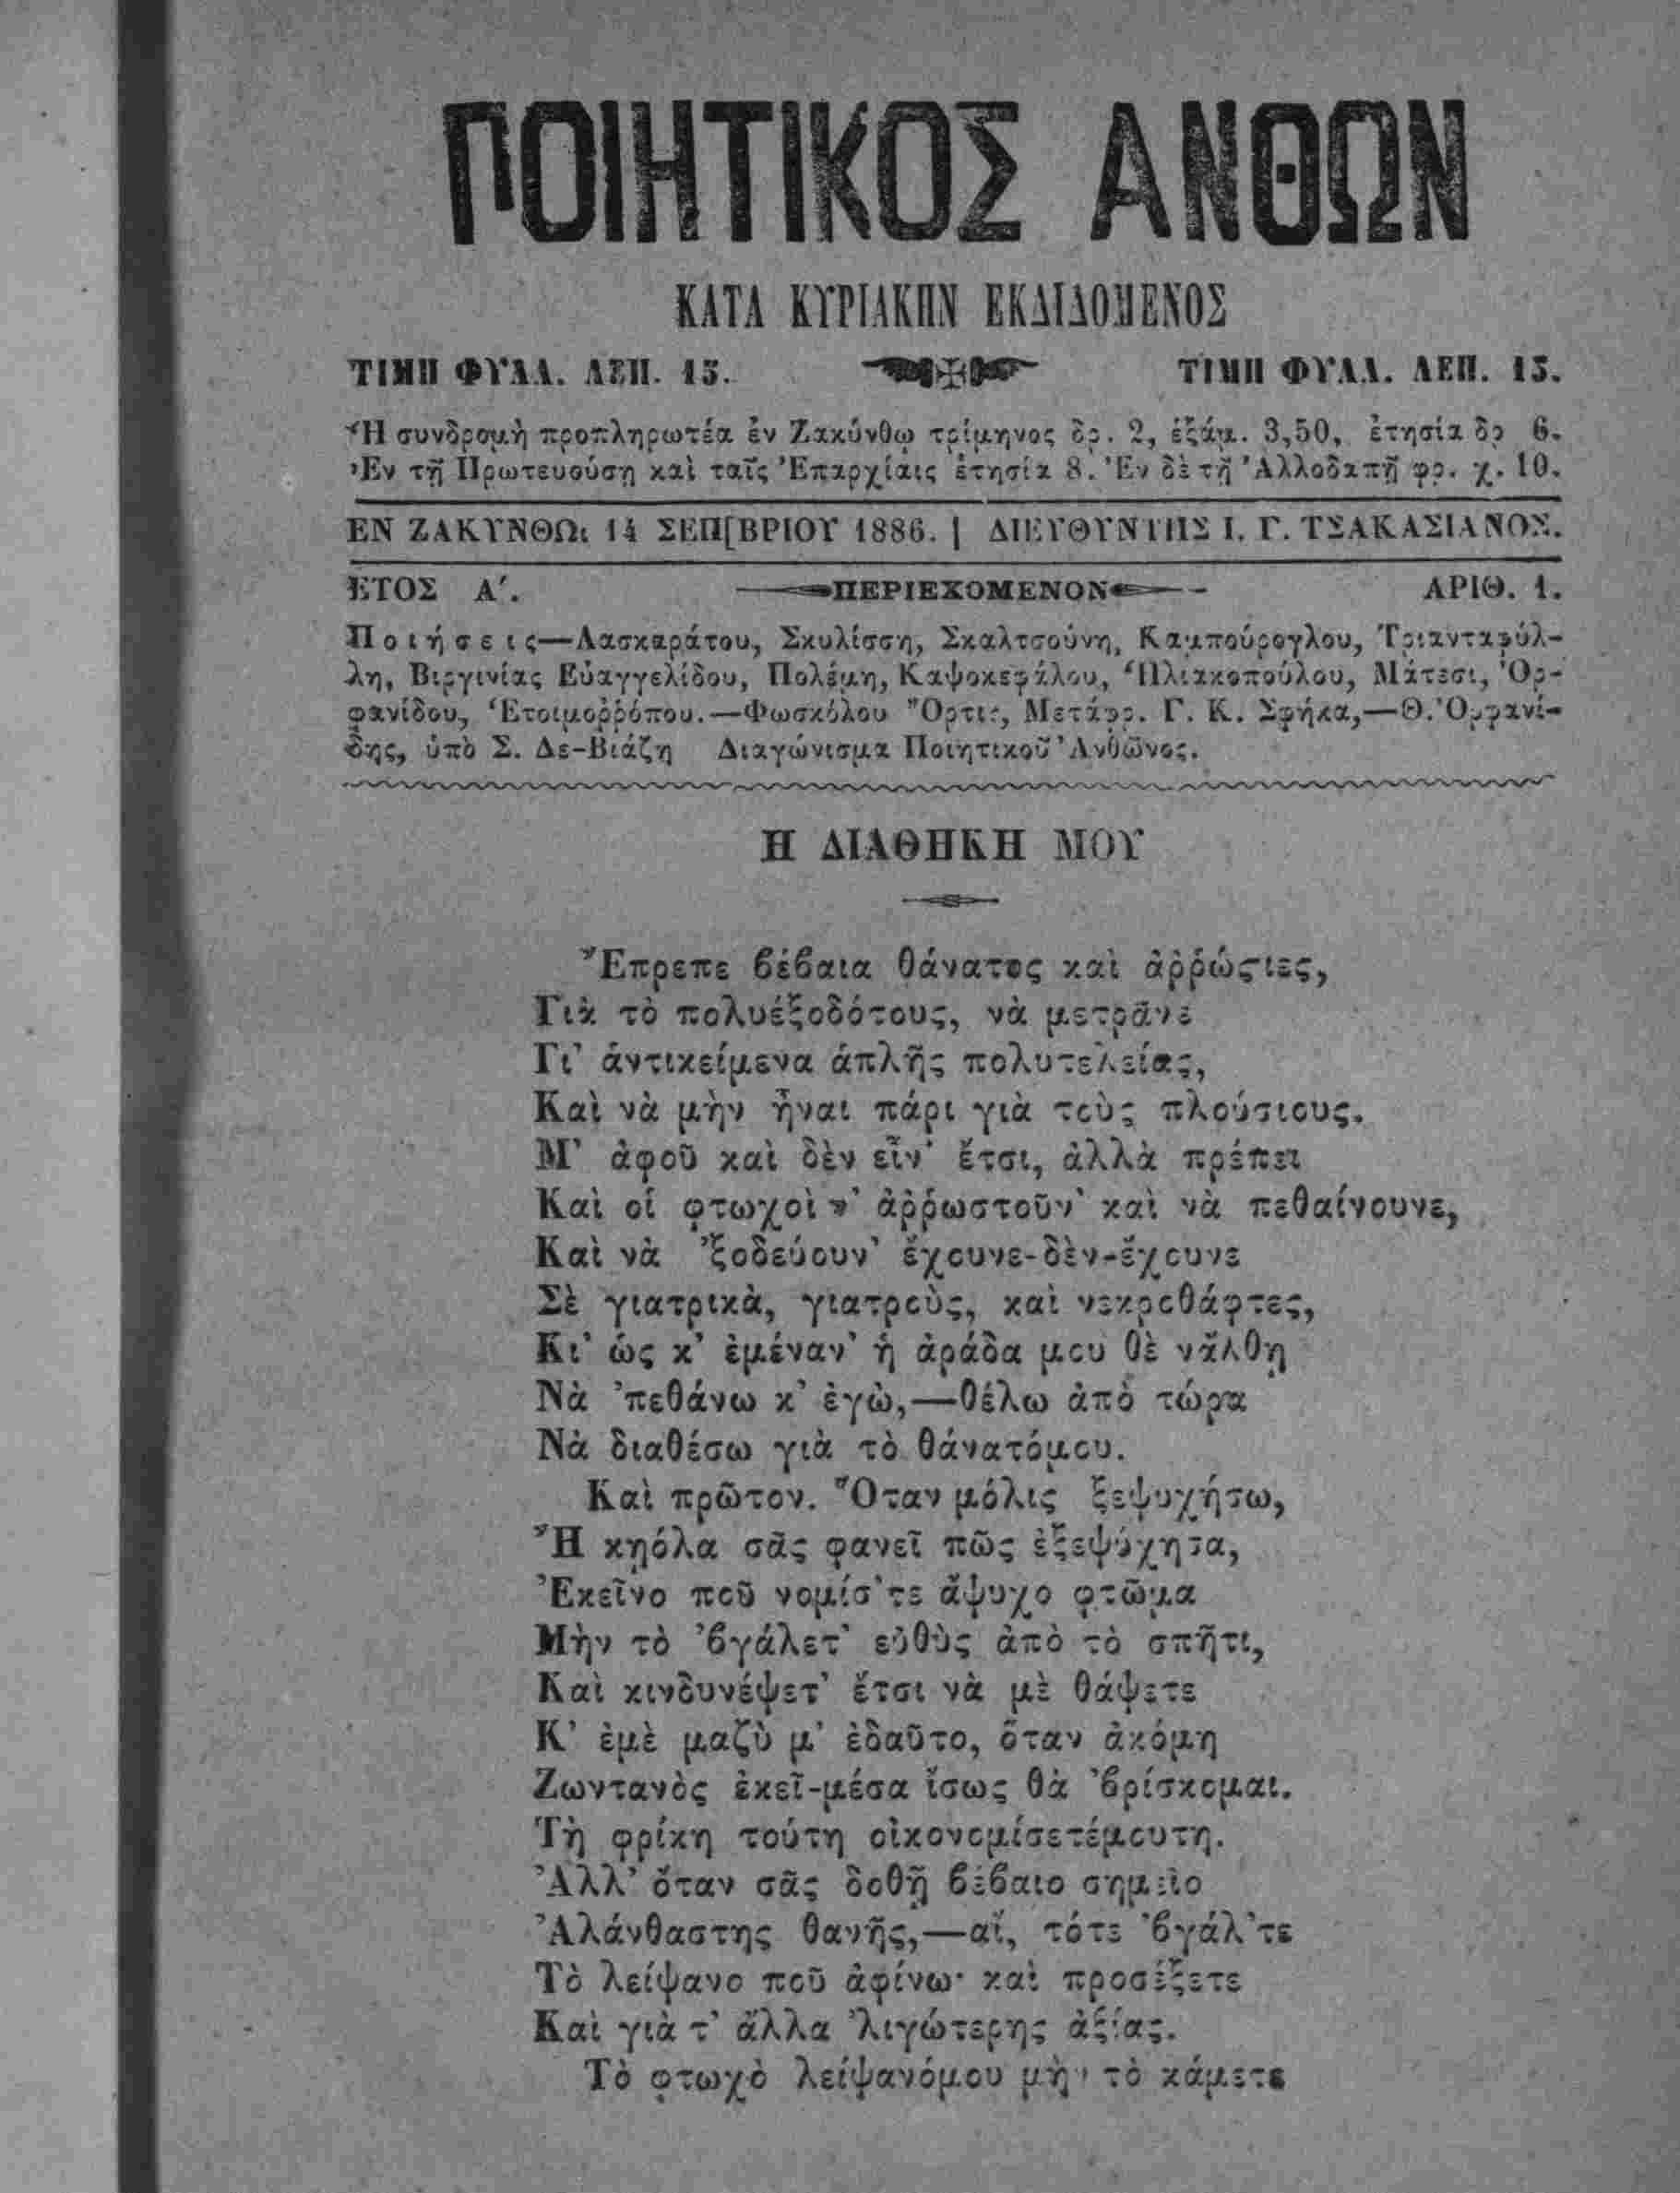 ΠΟΙΗΤΙΚΟΣ ΑΝΘΩΝ
ΚΑΤΑ ΚΥΡΙΑΚΗΝ ΕΚΔΙΔΟΜΕΝΟΣ
ΤΙΜΗ ΦΥΛΛ. ΛΕΠ. 15. ΤΙΜΗ ΦΥΛΛ. ΛΕΠ. 15.
Ἡ συνδρομὴ προπληρωτέα ἐν Ζακύνθῳ τρίμηνος δρ. 2, ἑξάμ. 3,50, ἐτησία δρ 6.
Ἐν τῇ Πρωτευούσῃ καὶ ταῖς Ἐπαρχίαις ἐτησία 8. Ἐν δὲ τῇ Ἀλλοδαπῇ φρ. χ. 10.
ΕΝ ΖΑΚΥΝΘΩι 14 ΣΕΠ[ΒΡΙΟΥ 1886. | ΔΙΕΥΘΥΝΤΗΣ Ι. Γ. ΤΣΑΚΑΣΙΑΝΟΣ.
ΕΤΟΣ Α΄. ΠΕΡΙΕΧΟΜΕΝΟΝ ΑΡΙΘ. 1.
Ποιήσεις—Λασκαράτου, Σκυλίσση, Σκαλτσούνη, Καμπούρογλου, Τριανταφύλ-
λη, Βιργινίας Εὐαγγελίδου, Πολέμη, Καψοκεφάλου, Ἡλιακοπούλου, Μάτεσι, Ὀρ-
φανίδου, Ἑτοιμοῤῥόπου.—Φωσκόλου Ὄρτις, Μετάφρ. Γ. Κ. Σφήκα,—Θ. Ὀρφανί-
δης, ὑπὸ Σ. Δε-Βιάζη Διαγώνισμα Ποιητικοῦ Ἀνθῶνος.
Η ΔΙΑΘΗΚΗ ΜΟΥ
Ἔπρεπε βέβαια θάνατος καὶ ἀῤῥώστιες,
Γιὰ τὸ πολυέξοδότους, νὰ μετρᾶνε
Γι' ἀντικείμενα ἁπλῆς πολυτελείας,
Καὶ νὰ μὴν ἦναι πάρι γιὰ τοὺς πλούσιους.
Μ' ἀφοῦ καὶ δὲν εἶν' ἔτσι, ἀλλὰ πρέπει
Καὶ οἱ φτωχοὶ ν' ἀῤῥωστοῦν' καὶ νὰ πεθαίνουνε,
Καὶ νὰ 'ξοδεύουν' ἔχουνε-δὲν-ἔχουνε
Σὲ γιατρικὰ, γιατροὺς, καὶ νεκροθάφτες,
Κι' ὡς κ' ἐμέναν' ἡ ἀράδα μου θὲ νἄλθῃ
Νὰ 'πεθάνω κ' ἐγὼ,—θέλω ἀπὸ τώρα
Νὰ διαθέσω γιὰ τὸ θάνατόμου.
Καὶ πρῶτον. Ὅταν μόλις ξεψυχήσω,
Ἢ κῃόλα σᾶς φανεῖ πῶς ἐξεψύχησα,
Ἐκεῖνο ποῦ νομίσ'τε ἄψυχο φτῶμα
Μὴν τὸ 'βγάλετ' εὐθὺς ἀπὸ τὸ σπῆτι,
Καὶ κινδυνέψετ' ἔτσι νὰ μὲ θάψετε
Κ' ἐμὲ μαζὺ μ' ἐδαῦτο, ὅταν ἀκόμη
Ζωντανὸς ἐκεῖ-μέσα ἴσως θὰ 'βρίσκομαι.
Τὴ φρίκη τούτη οἰκονομίσετέμουτη.
Ἀλλ' ὅταν σᾶς δοθῇ βέβαιο σημεῖο
Ἀλάνθαστης θανῆς,—αἴ, τότε 'βγάλ'τε
Τὸ λείψανο ποῦ ἀφίνω· καὶ προσέξετε
Καὶ γιὰ τ' ἄλλα 'λιγώτερης ἀξίας.
Τὸ φτωχὸ λείψανόμου μὴν τὸ κάμετε